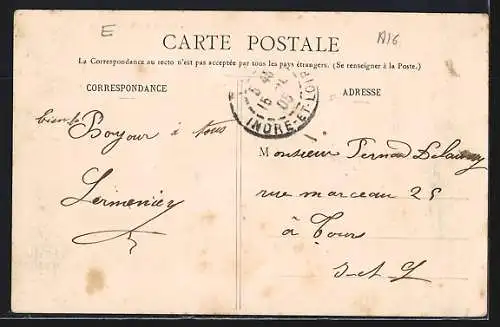 E
A16
CARTE POSTALE
La Correspondance au recto n'est pas acceptée par tous les pays étrangers. (Se renseigner à la Poste.)
CORRESPONDANCE
ADRESSE
INDRE-ET-LOIRE
bien le Bonjour à tous
Monsieur Fernand Delaunay
rue marceau 25
à Tours
I-et-L